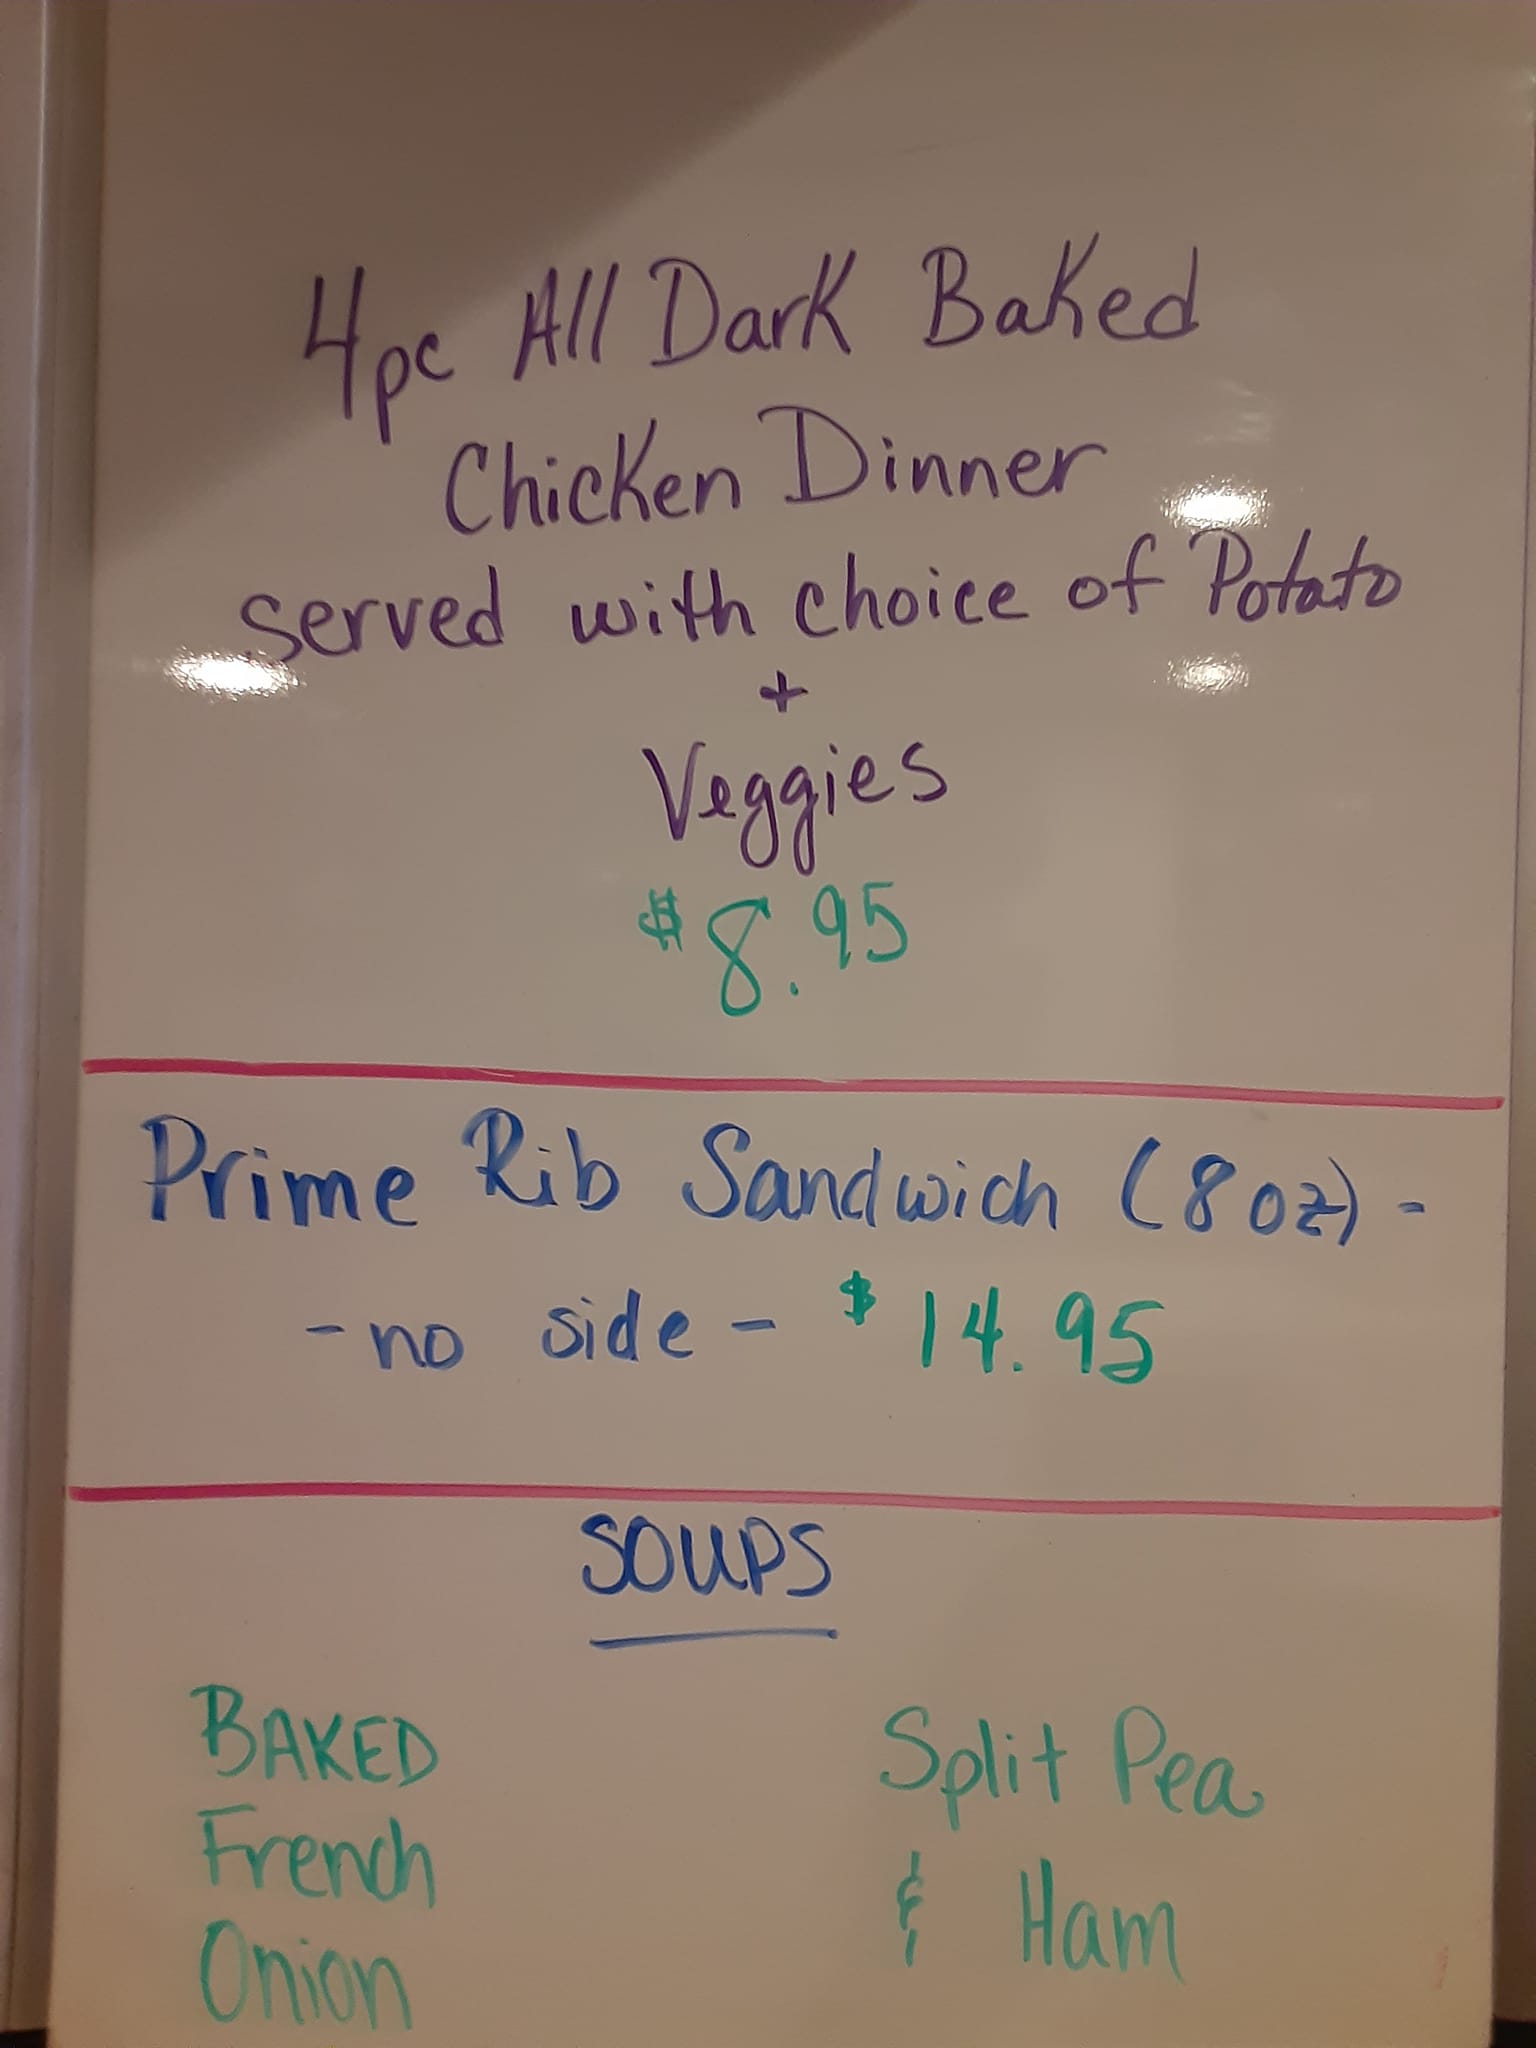 4pc All Dark Baked
Chicken Dinner
served with choice of Potato
+
Veggies
$8.95
Prime Rib Sandwich (8oz) -
- no side - $14.95
SOUPS
BAKED
French
Onion
Split Pea
& Ham